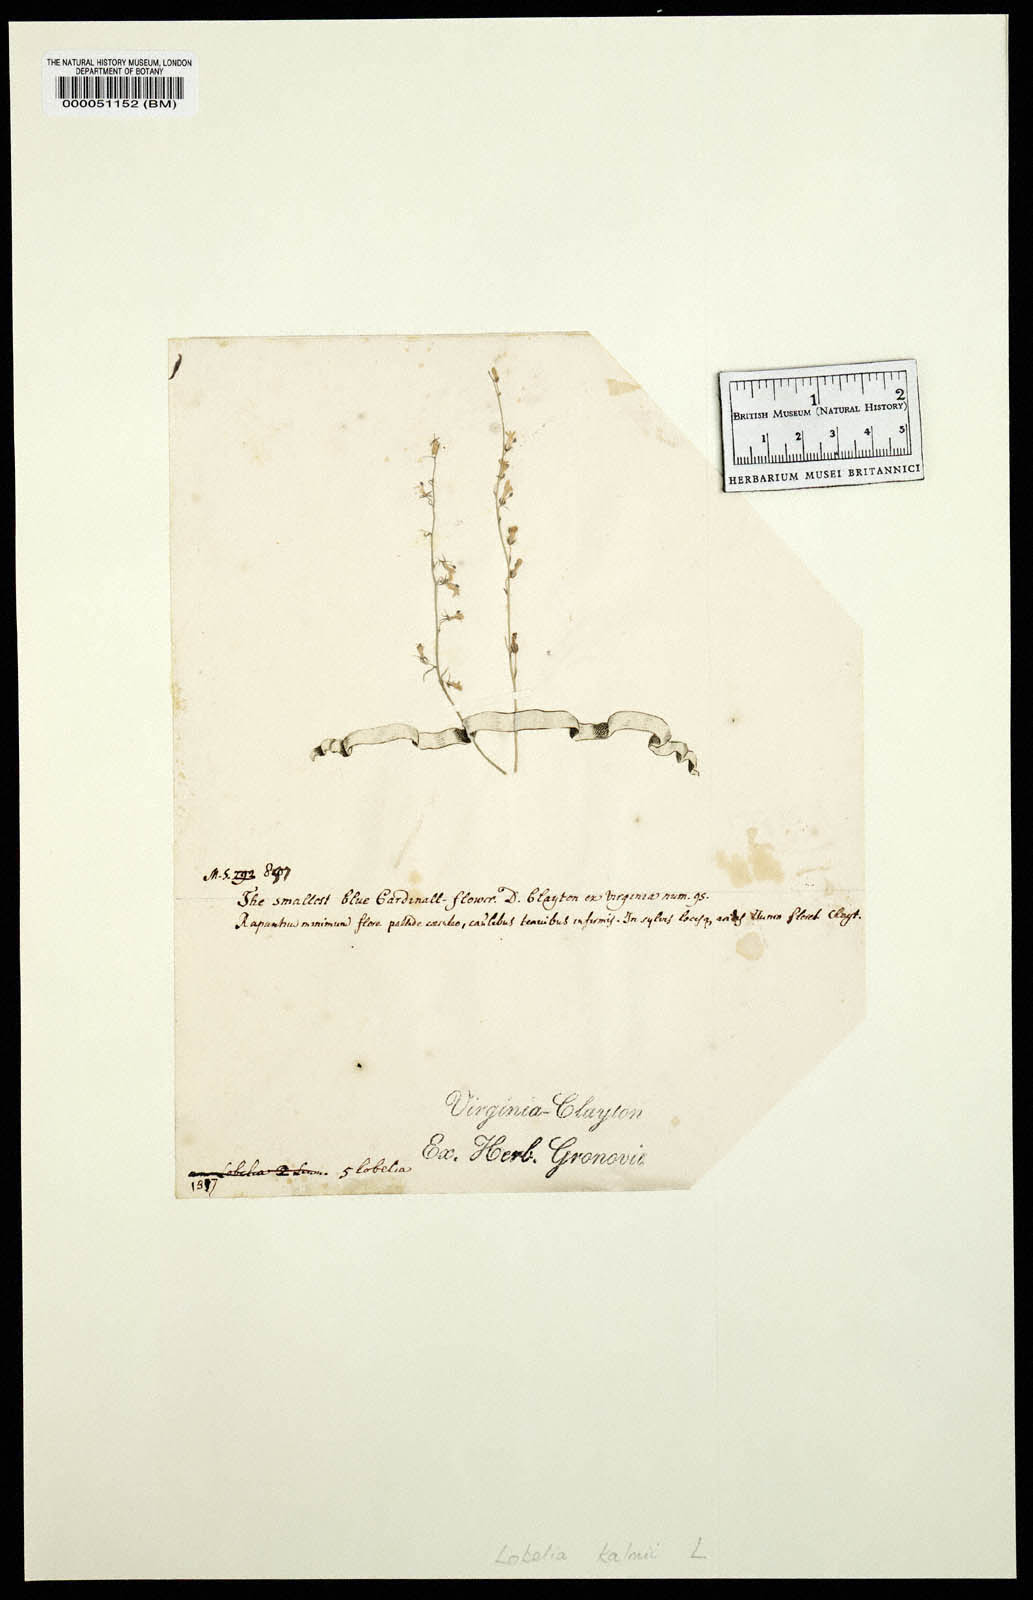 THE NATURAL HISTORY MUSEUM, LONDON
DEPARTMENT OF BOTANY
000051152 (BM)
1 2
BRITISH MUSEUM (NATURAL HISTORY)
1 2 3 4 5
HERBARIUM MUSEI BRITANNICI
M.S. 292
The smallest blue Cardinall-flower. D. Clayton ex Virginia num. 95.
minimum flore pallide cæruleo, caulibus tenuibus infirmis. In sylvis Junio floret Clayt.
Virginia-Clayton
Ex. Herb. Gronovii
Lobelia 2 5 lobelia
Lobelia kalmii L